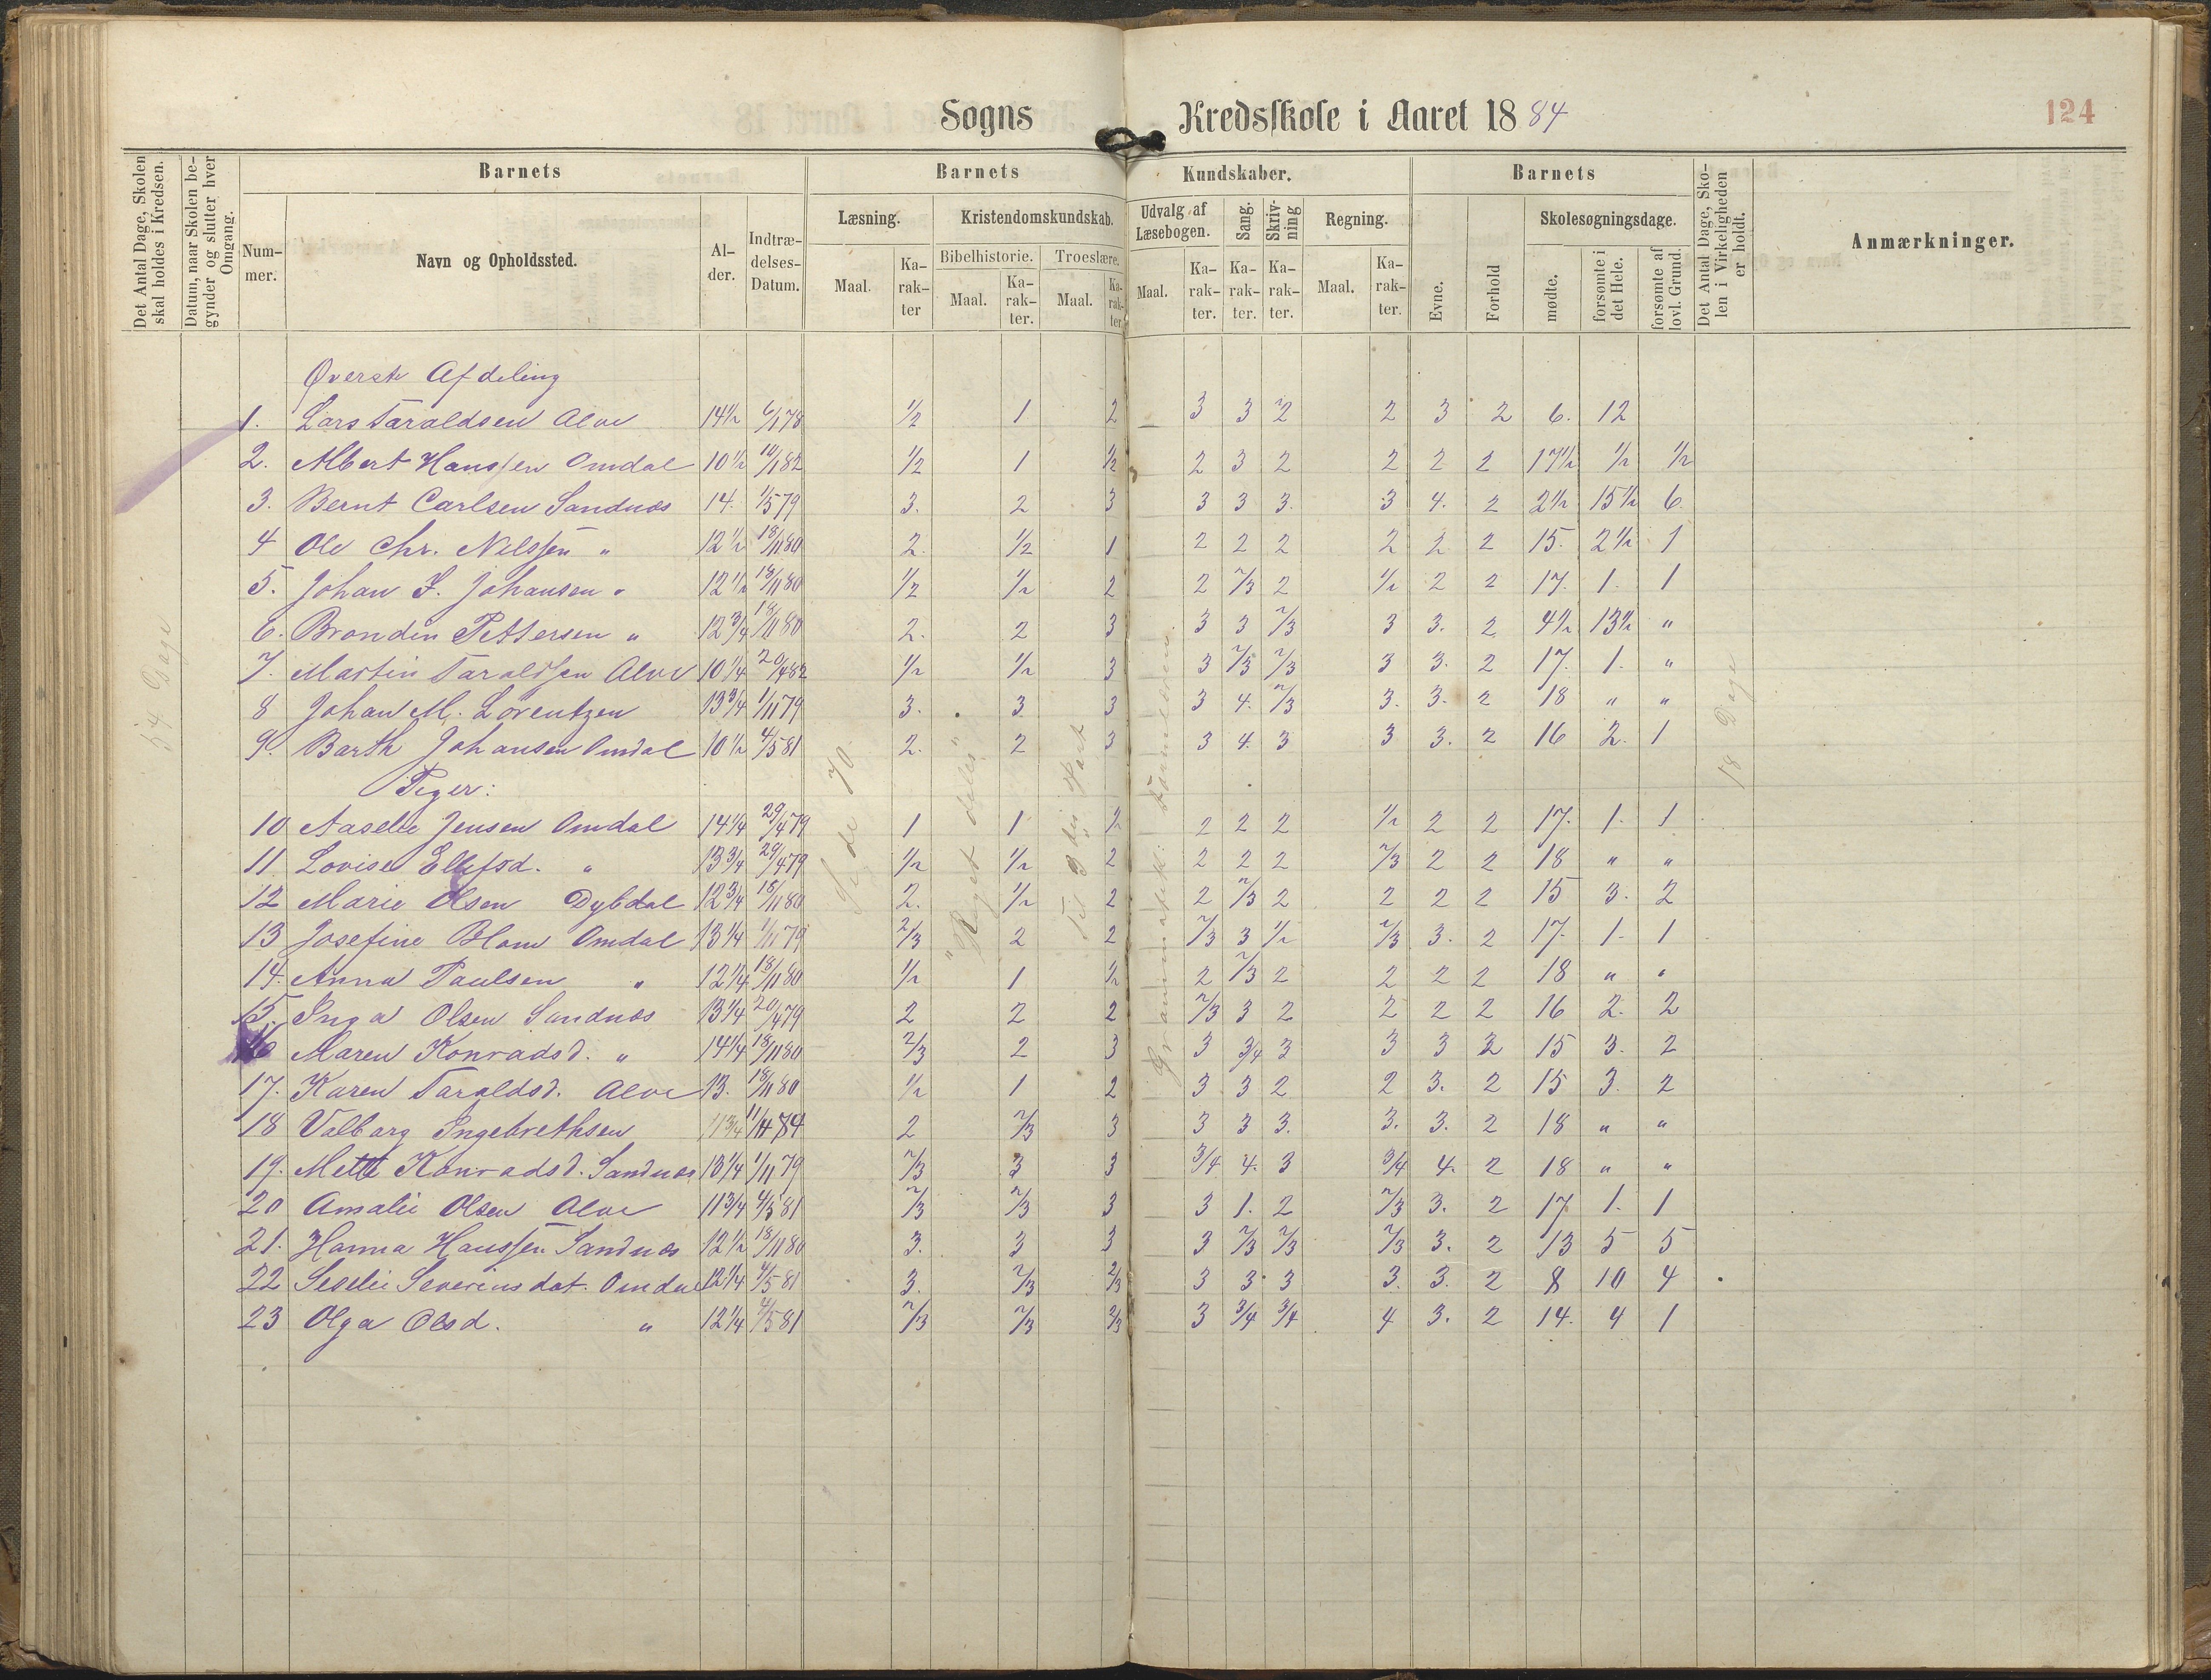 Sogns Kredsskole i Aaret 1884 124
Det Antal Dage, Skolen skal holdes i Kredsen.
Datum, naar Skolen begynder og slutter hver Omgang.
Barnets Barnets Kundskaber. Barnets
Det Antal Dage, Skolen i Virkeligheden er holdt.
Anmærkninger.
Nummer. Navn og Opholdssted. Alder. Indtrædelses-Datum.
Læsning. Kristendomskundskab. Udvalg af Læsebogen. Sang. Skrivning Regning. Evne. Forhold Skolesøgningsdage.
Bibelhistorie. Troeslære.
Maal. Karakter Maal. Karakter. Maal. Karakter. Maal. Karakter. Karakter. Karakter. Maal. Karakter. mødte. forsømte i det Hele. forsømte af lovl. Grund.
Øverste Afdeling
1. Lars Taraldsen Alve 14½ 6/1 78 ½ 1 2 3 3 2 2 3 2 6. 12
2. Albert Hanssen Omdal 10½ 10/1 82 ½ 1 ½ 2 3 2 2 2 2 17½ ½ ½
3. Bernt Carlsen Sandnæs 14. 1/5 79 3. 2 3 3 3 3. 3 4. 2 2½ 15½ 6.
4 Ole Chr. Nilssen " 12½ 18/11 80 2. ½ 1 2 2 2 2 2 2 15. 2½ 1
5. Johan S. Johansen " 12½ 18/11 80 ½ ½ 2 2 2/3 2 ½ 2 2 17. 1. 1
6. Brondin Pettersen " 12¾ 18/11 80 2. 2 3 3 3 2/3 3 3. 2 4½ 13½ "
7. Martin Taraldsen Alve 10¼ 20/4 82 ½ ½ 3 3 2/3 2/3 3 3. 2 17. 1. "
8 Johan M. Lorentzen 13¾ 1/11 79 3. 3 3 3 4. 2/3 3. 3. 2 18 " "
9. Barth Johansen Omdal 10½ 4/5 81 2. 2 3 3 4. 3 3 3. 2 16 2. 1
Piger:
10 Aaselie Jensen Omdal 14¼ 29/4 79 1 1 ½ 2 2 2 ½ 2 2 17. 1. 1
11. Lovise Ellefsd. " 13¾ 29/4 79 ½ ½ 2 2 2 2 2/3 2 2 18 " "
12 Marie Olsen Dybdal 12¾ 18/11 80 2. ½ 2 2 2/3 2 2 2 2 15 3. 2
13 Josefine Blom Omdal 13¼ 1/11 79 2/3 2 2 2/3 3 ½ 2/3 3. 2 17. 1. 1
14. Anna Paulsen " 12¼ 18/11 80 ½ 1 ½ 2 2/3 2 2 2 2 18 " "
15. Inga Olsen Sandnæs 13¼ 20/4 79 2 2 2 2/3 3 2 2 2 2 16 2. 2
16 Maren Konradsd. " 14¼ 18/11 80 2/3 2 3 3 3/4 3 3 3 2 15 3. 2
17. Karen Taraldsd. Alve 13. 18/11 80 ½ 1 2 3 3 2 2 3. 2 15 3. 2
18 Valborg Ingebrethsen 11¾ 11/11 84 2 2/3 3 3 3 3. 3. 3. 2 18 " "
19. Mette Konradsd. Sandnæs 13¼ 1/11 79 2/3 3 3 3/4 4. 3 3/4 4. 2 18 " "
20 Amalie Olsen Alve 11¾ 4/5 81 2/3 2/3 3 3 1. 2 2/3 3. 2 17 1. 1
21. Hanna Hanssen Sandnæs 12½ 18/11 80 3. 3 3 3 2/3 2/3 2/3 3. 2 13 5 5
22 Seselie Severinsdat. Omdal 12¼ 4/5 81 3. 2/3 2/3 3 3 3 3. 3. 2 8 10 4
23 Olga Olsd. " 12¼ 4/5 81 2/3 2/3 2/3 3 3/4 3/4 4 3. 2 14. 4 1
54 Dage
Side 70
"Riget deles"
Til 3die Part
18 Dage